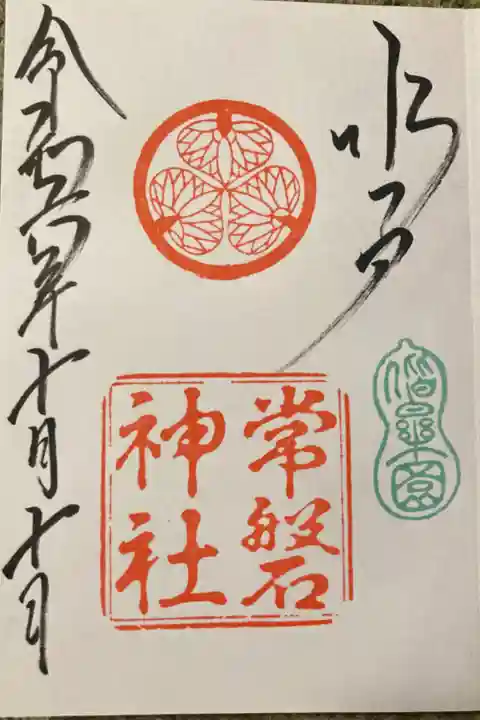 水戸
偕樂園
常磐
神社
令和六年十月十日